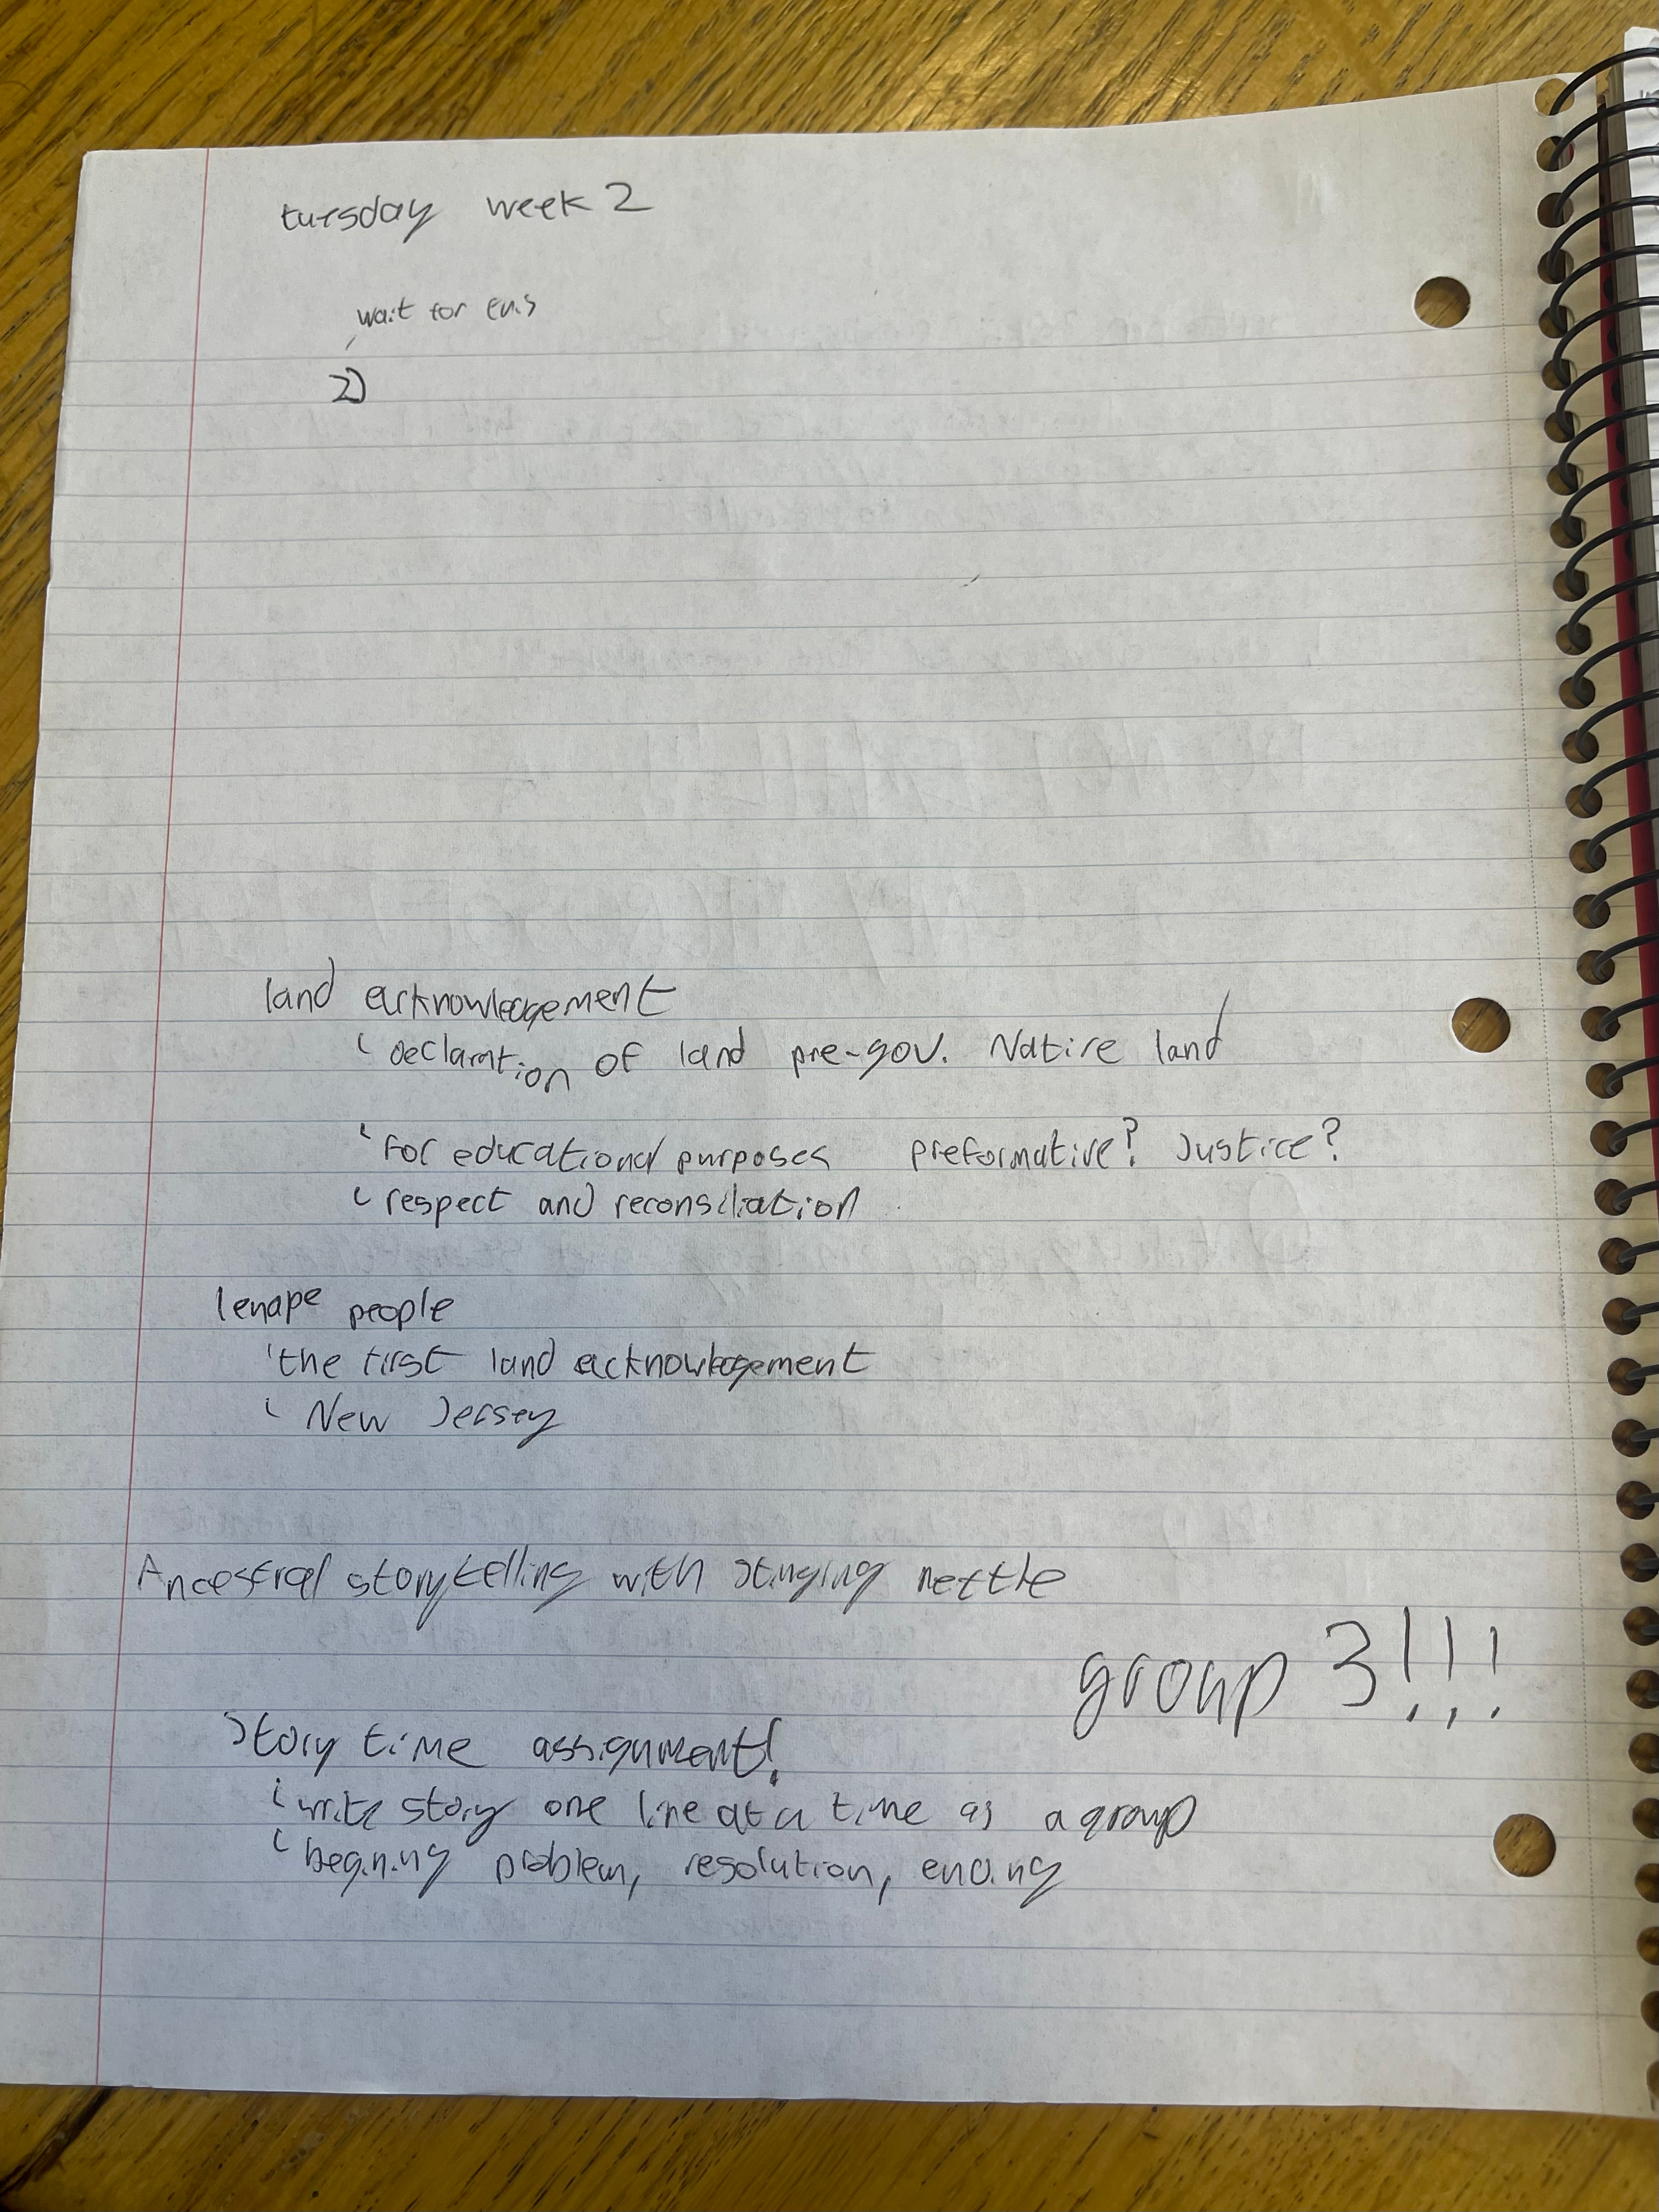 tuesday week 2
wait for this
2)
land acknowledgement
declaration of land pre-gov. Native land
for educational purposes preformative? Justice?
respect and reconsiliation
lenape people
the first land acknowledgement
New Jersey
Ancestral storytelling with stinging nettle
group 3!!!
Story time assignment!
write story one line at a time as a group
begining problem, resolution, ending